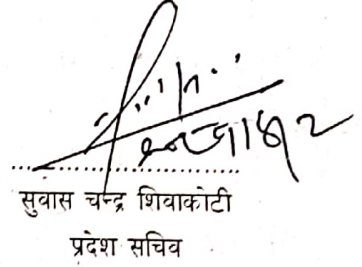 ........................................
सुवास चन्द्र शिवाकोटी
प्रदेश सचिव